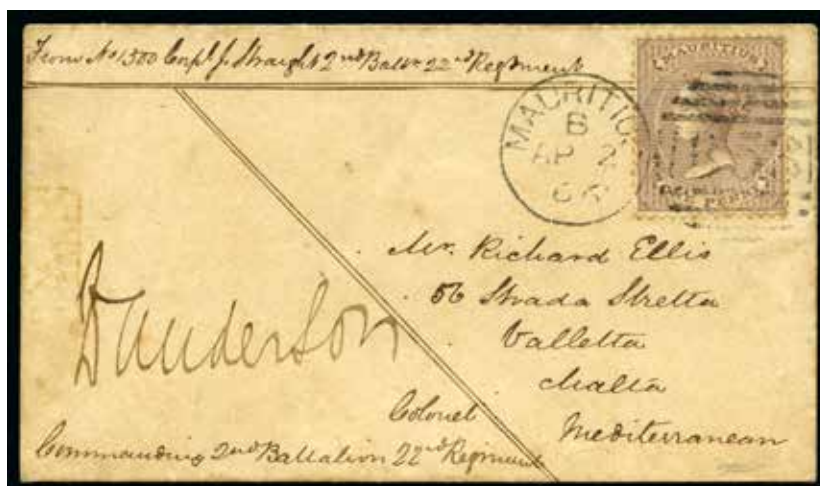 From No 1500 Corpl J. Straight 2nd Battn 22nd Regiment
MAURITIUS
MAURITIU
B
AP 2
66
PENNY
Mr. Richard Ellis
56 Strada Stretta
Valletta
Malta
Mediterranean
Anderson
Colonel
Commanding 2nd Battalion 22nd Regiment